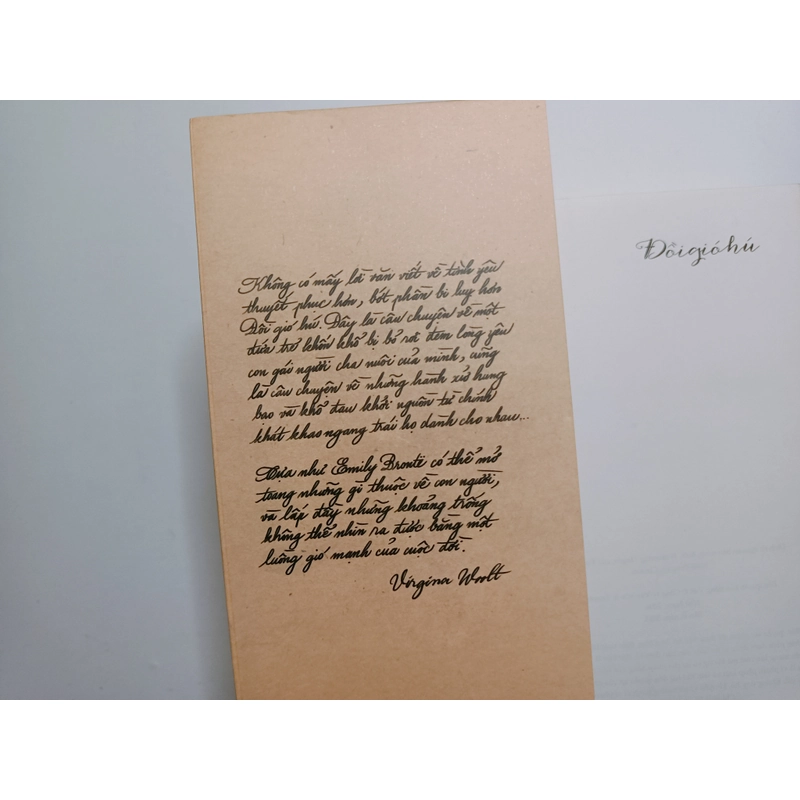 Không có mấy lời văn viết về tình yêu
thuyết phục hơn, bớt phần bi lụy hơn
Đồi gió hú. Đây là câu chuyện về một
đứa trẻ khốn khổ bị bỏ rơi đem lòng yêu
con gái người cha nuôi của mình, cũng
là câu chuyện về những hành xử hung
bạo và khổ đau khởi nguồn từ chính
khát khao ngang trái họ dành cho nhau...
Tựa như Emily Brontë có thể mở
toang những gì thuộc về con người,
và lấp đầy những khoảng trống
không thể nhìn ra được bằng một
luồng gió mạnh của cuộc đời.
Virgina Woolf
Đồi gió hú